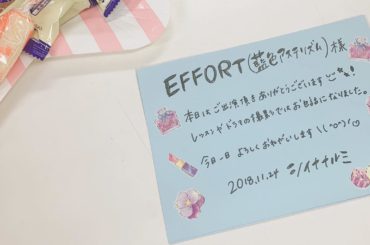 EFFORT(藍色アステリズム) 様
本日はご出演頂きありがとうございます!
レッスンやドラマの撮影ではお世話になりました。
今日一日 よろしくおねがいします \(^o^)/
2018.11.24 シイナナルミ